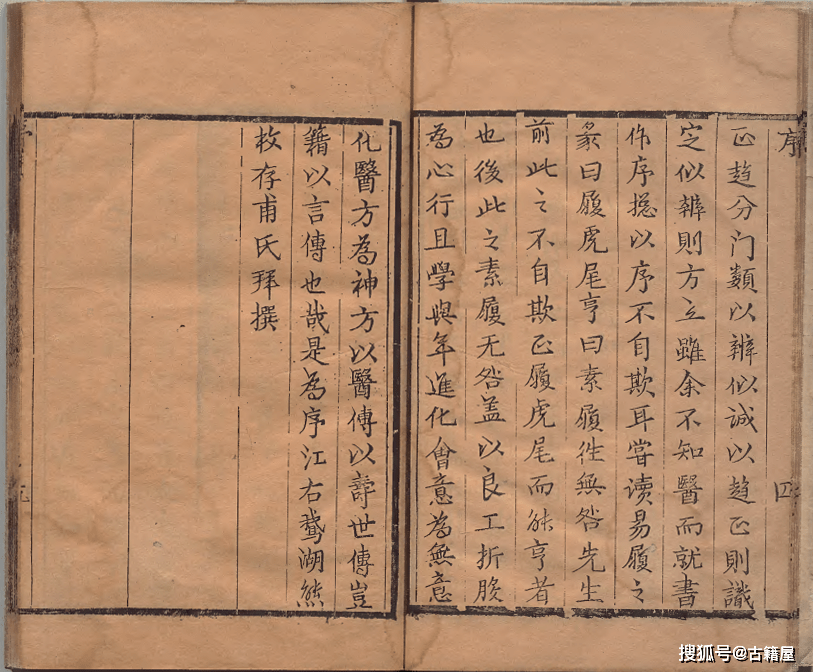 序 四
正趋分门類以辨似诚以趋正則識
定似辨則方立雖余不知醫而就書
作序捴以序不自欺耳嘗读易履之
彖曰履虎尾亨曰素履徃無咎先生
前此之不自欺正履虎尾而能亨者
也後此之素履无咎盖以良工折肱
為心行且學與年進化會意為無意
化醫方為神方以醫傳以壽世傳豈
籍以言傳也哉是為序江右鵞湖熊
枚存甫氏拜撰
搜狐号@古籍屋